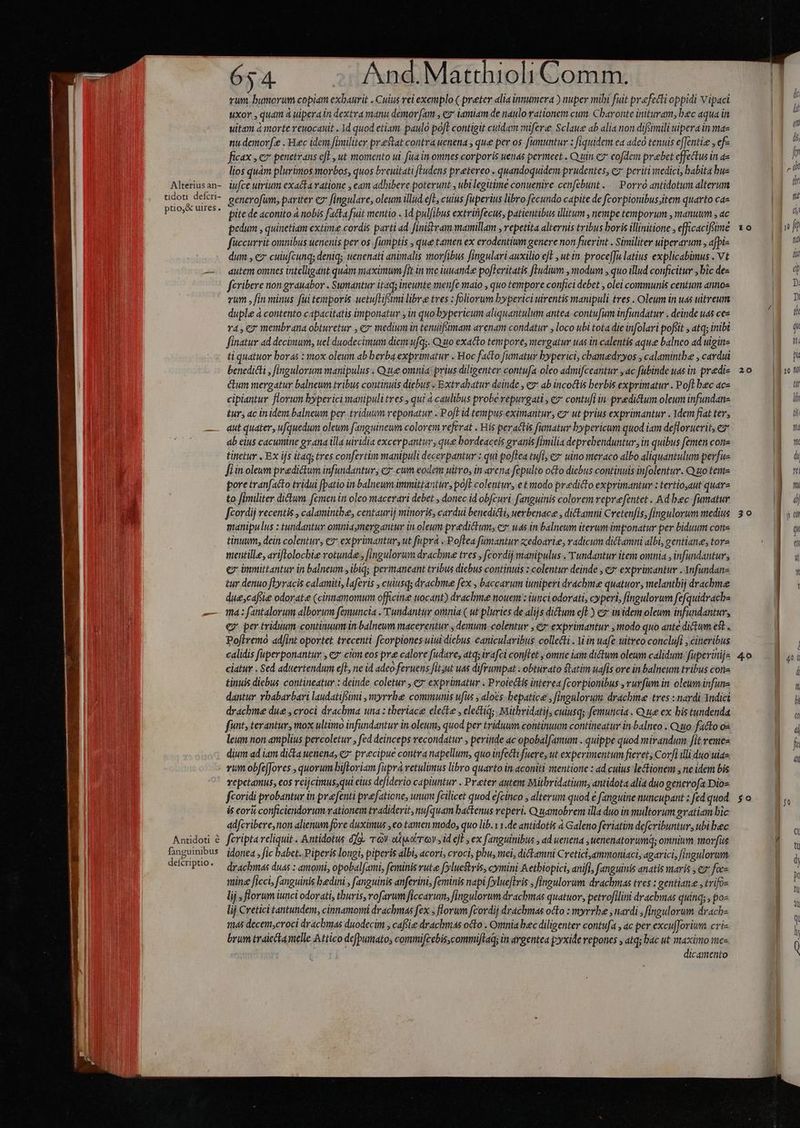 654 And. Matthioli Comm.
rum humorum copiam exhaurit. Cuius rei exemplo (præter alia innumera) nuper mihi fuit præfecti oppidi Vipaci
uxor, quàm à uipera in dextra manu demorsam, & iamiam de naulo rationem cum Charonte inituram, hæc aqua in
uitam à morte reuocauit. Id quod etiam paulò pòst contigit cuidam miseræ Sclauæ ab alia non dissimili uipera in ma=
nu demorsæ. Hæc idem similiter præstat contra uenena, quæ per os sumuntur: siquidem ea adeò tenuis essentiæ, effi=
ficax, & penetrans est, ut momento ui sua in omnes corporis uenas permeet. Quin & eosdem præbet effectus in a=
lios quàm plurimos morbos, quos breuitati studens prætereo. quandoquidem prudentes, & periti medici, habita hu=
Alterius an= iusce uirium exacta ratione, eam adhibere poterunt, ubi legitimè conuenire censebunt. Porrò antidotum alterum
tidoti descri= generosum, pariter & singulare, oleum illud est, cuius superius libro secundo capite de scorpionibus, item quarto ca=
ptio, & uires. pite de aconito à nobis facta fuit mentio. Id pulsibus extrinsecus, patientibus illitum, nempe temporum, manuum, ac
pedum, quinetiam extimæ cordis parti ad sinistram mamillam, repetita alternis tribus horis illinitione, efficacissimè 10
succurrit omnibus uenenis per os sumptis, quæ tamen ex erodentium genere non fuerint. Similiter uiperarum, aspi=
dum, & cuiuscunq; deniq; uenenati animalis morsibus singulari auxilio est, ut in processu latius explicabimus. Vt
autem omnes intelligant quàm maximum sit in me iuuandæ posteritatis studium, modum, quo illud conficitur, hic de=
scribere non grauabor. Sumantur itaq; ineunte mense maio, quo tempore confici debet, olei communis centum anno=
rum, sin minus sui temporis uetustissimi libræ tres: foliorum hyperici uirentis manipuli tres. Oleum in uas uitreum
duplæ à contento capacitatis imponatur, in quo hypericum aliquantulum antea contusum infundatur. deinde uas ce=
ra, & membrana obturetur, & medium in tenuissimam arenam condatur, loco ubi tota die insolari possit, atq; inibi
sinatur ad decimum, uel duodecimum diem usq;. Quo exacto tempore, mergatur uas in calentis aquæ balneo ad uigin=
ti quatuor horas: mox oleum ab herba exprimatur. Hoc facto sumatur hyperici, chamædryos, calaminthæ, cardui
benedicti, singulorum manipulus. Quæ omnia prius diligenter contusa oleo admisceantur, ac subinde uas in prædi= 20
ctum mergatur balneum tribus continuis diebus. Extrahatur deinde, & ab incoctis herbis exprimatur. Post hæc ac=
cipiantur florum hyperici manipuli tres, qui à caulibus probè repurgati, & contusi in prædictum oleum infundan=
tur, ac in idem balneum per triduum reponatur. Post id tempus eximantur, & ut prius exprimantur. Idem fiat ter,
aut quater, usquedum oleum sanguineum colorem referat. His peractis sumatur hypericum quod iam defloruerit, &
ab eius cacumine grana illa uiridia excerpantur, quæ hordeaceis granis similia deprehenduntur, in quibus semen con=
tinetur. Ex ijs itaq; tres confertim manipuli decerpantur: qui postea tusi, & uino meraco albo aliquantulum perfu=
si in oleum prædictum infundantur, & cum eodem uitro, in arena sepulto octo diebus continuis insolentur. Quo tem=
pore transacto tridui spatio in balneum immittantur, pòst colentur, et modo prædicto exprimantur: tertio, aut quar=
to similiter dictum semen in oleo macerari debet, donec id obscuri sanguinis colorem repræsentet. Ad hæc sumatur
scordij recentis, calaminthæ, centaurij minoris, cardui benedicti, uerbenacæ, dictamni Cretensis, singulorum medius 30
manipulus: tundantur omnia, mergantur in oleum prædictum, & uas in balneum iterum imponatur per biduum con=
tinuum, dein colentur, & exprimantur, ut suprà. Postea sumantur zedoariæ, radicum dictamni albi, gentianæ, tor=
mentillæ, aristolochiæ rotundæ, singulorum drachmæ tres, scordij manipulus. Tundantur item omnia, infundantur,
& immittantur in balneum, ibiq; permaneant tribus diebus continuis: colentur deinde, & exprimantur. Infundan=
tur denuo styracis calamiti, laseris, cuiusq; drachmæ sex, baccarum iuniperi drachmæ quatuor, melanthij drachmæ
duæ, casiæ odoratæ (cinnamomum officinæ uocant) drachmæ nouem: iunci odorati, cyperi, singulorum sesquidrach=
ma: santalorum alborum semuncia. Tundantur omnia (ut pluries de alijs dictum est) & in idem oleum infundantur,
& per triduum continuum in balneum macerentur, demum colentur, & exprimantur, modo quo antè dictum est.
Postremò adsint oportet trecenti scorpiones uiui diebus canicularibus collecti. Ii in uase uitreo conclusi, cineribus
calidis superponantur, & cùm eos præ calore sudare, atq; irasci constet, omne iam dictum oleum calidum superinij= 40
ciatur. Sed aduertendum est, ne id adeò feruens sit, ut uas disrumpat. obturato statim uasis ore in balneum tribus con=
tinuis diebus contineatur: deinde coletur, & exprimatur. Proiectis interea scorpionibus, rursum in oleum infun=
dantur rhabarbari laudatissimi, myrrhæ communis usus, aloës hepaticæ, singulorum drachmæ tres: nardi Indici
drachmæ duæ, croci drachma una: theriacæ electæ, electiq; Mithridatij, cuiusq; semuncia. Quæ ex his tundenda
sunt, terantur, mox ultimò infundantur in oleum, quod per triduum continuum contineatur in balneo. Quo facto o=
leum non amplius percoletur, sed deinceps recondatur, perinde ac opobalsamum. quippe quod mirandum sit reme=
dium ad iam dicta uenena, & præcipuè contra napellum, quo infecti fuere, ut experimentum fieret, Corsi illi duo uia=
rum obsessores, quorum historiam suprà retulimus libro quarto in aconiti mentione: ad cuius lectionem, ne idem bis
repetamus, eos reijcimus, qui eius desiderio capiuntur. Præter autem Mithridatium, antidota alia duo generosa Dio=
scoridi probantur in præsenti præfatione, unum scilicet quod è scinco, alterum quod è sanguine nuncupant: sed quod 50
is eorũ conficiendorum rationem tradiderit, nusquam hactenus reperi. Quamobrem illa duo in multorum gratiam hic
adscribere, non alienum fore duximus, eo tamen modo, quo lib. 11. de antidotis à Galeno seriatim describuntur, ubi hæc
Antidoti è scripta reliquit. Antidotus δϳὰ τῶν αἱμάτων, id est, ex sanguinibus, ad uenena, uenenatorumq; omnium morsus
sanguinibus idonea, sic habet. Piperis longi, piperis albi, acori, croci, phu, mei, dictamni Cretici, ammoniaci, agarici, singulorum
descriptio. drachmas duas: amomi, opobalsami, seminis rutæ syluestris, cymini Aethiopici, anisi, sanguinis anatis maris, & fœ=
minæ sicci, sanguinis hœdini, sanguinis anserini, seminis napi syluestris, singulorum drachmas tres: gentianæ, trifo=
lij, florum iunci odorati, thuris, rosarum siccarum, singulorum drachmas quatuor, petroselini drachmas quinq;, po=
lij Cretici tantundem, cinnamomi drachmas sex, florum scordij drachmas octo: myrrhæ, nardi, singulorum drach=
mas decem, croci drachmas duodecim, casiæ drachmas octo. Omnia hæc diligenter contusa, ac per excussorium cri=
brum traiecta melle Attico despumato, commiscebis, commistaq; in argentea pyxide repones, atq; hac ut maximo me=
dicamento